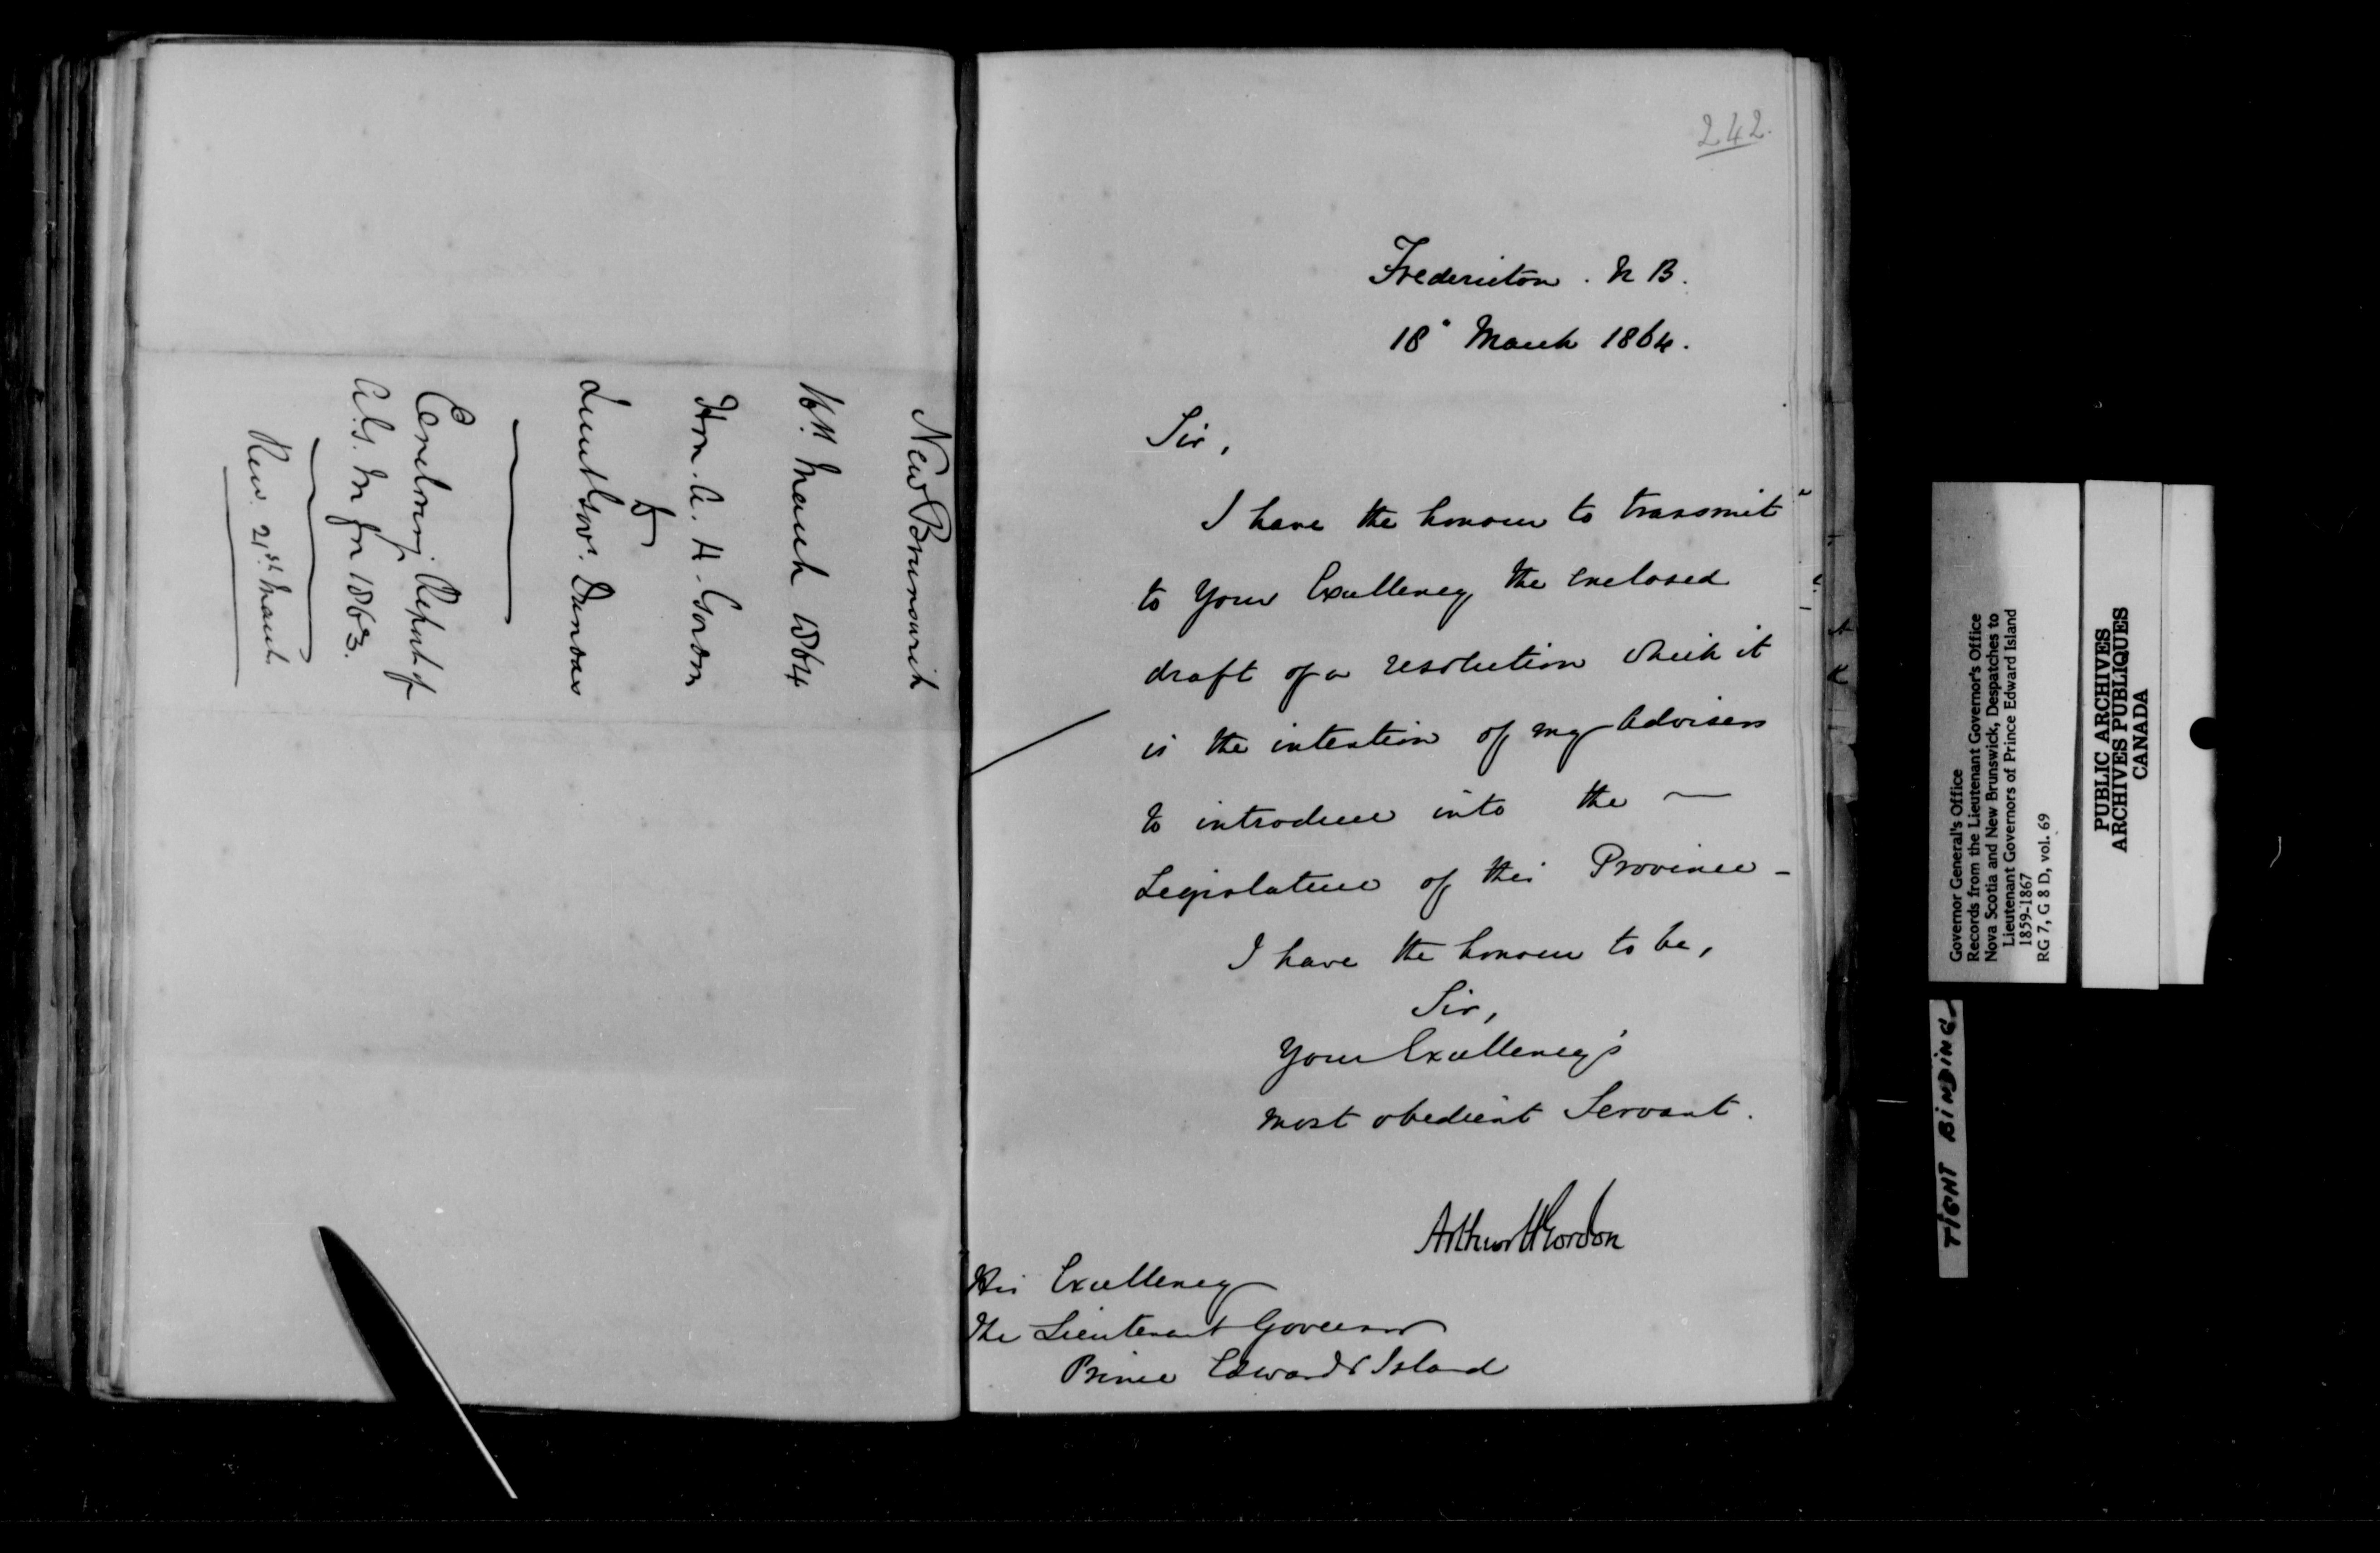 New Brunswick
16th March 1864
Hon. A. H. Gordon
to
Lieut Govr. Dundas
Enclosing Report of
A.G. for 1863.
Recd. 21st March
242.
Fredericton . N B.
18° March 1864.
Sir,
I have the honour to transmit
to Your Excellency the enclosed
draft of a resolution which it
is the intention of my Advisers
to introduce into the —
Legislature of this Province -
I have the honour to be,
Sir,
Your Excellency's
most obedient Servant.
Arthur H Gordon
His Excellency
The Lieutenant Governor
Prince Edward Island
Governor General's Office
Records from the Lieutenant Governor's Office
Nova Scotia and New Brunswick, Despatches to
Lieutenant Governors of Prince Edward Island
1859-1867
RG 7, G 8 D, vol. 69
PUBLIC ARCHIVES
ARCHIVES PUBLIQUES
CANADA
TIGHT BINDING